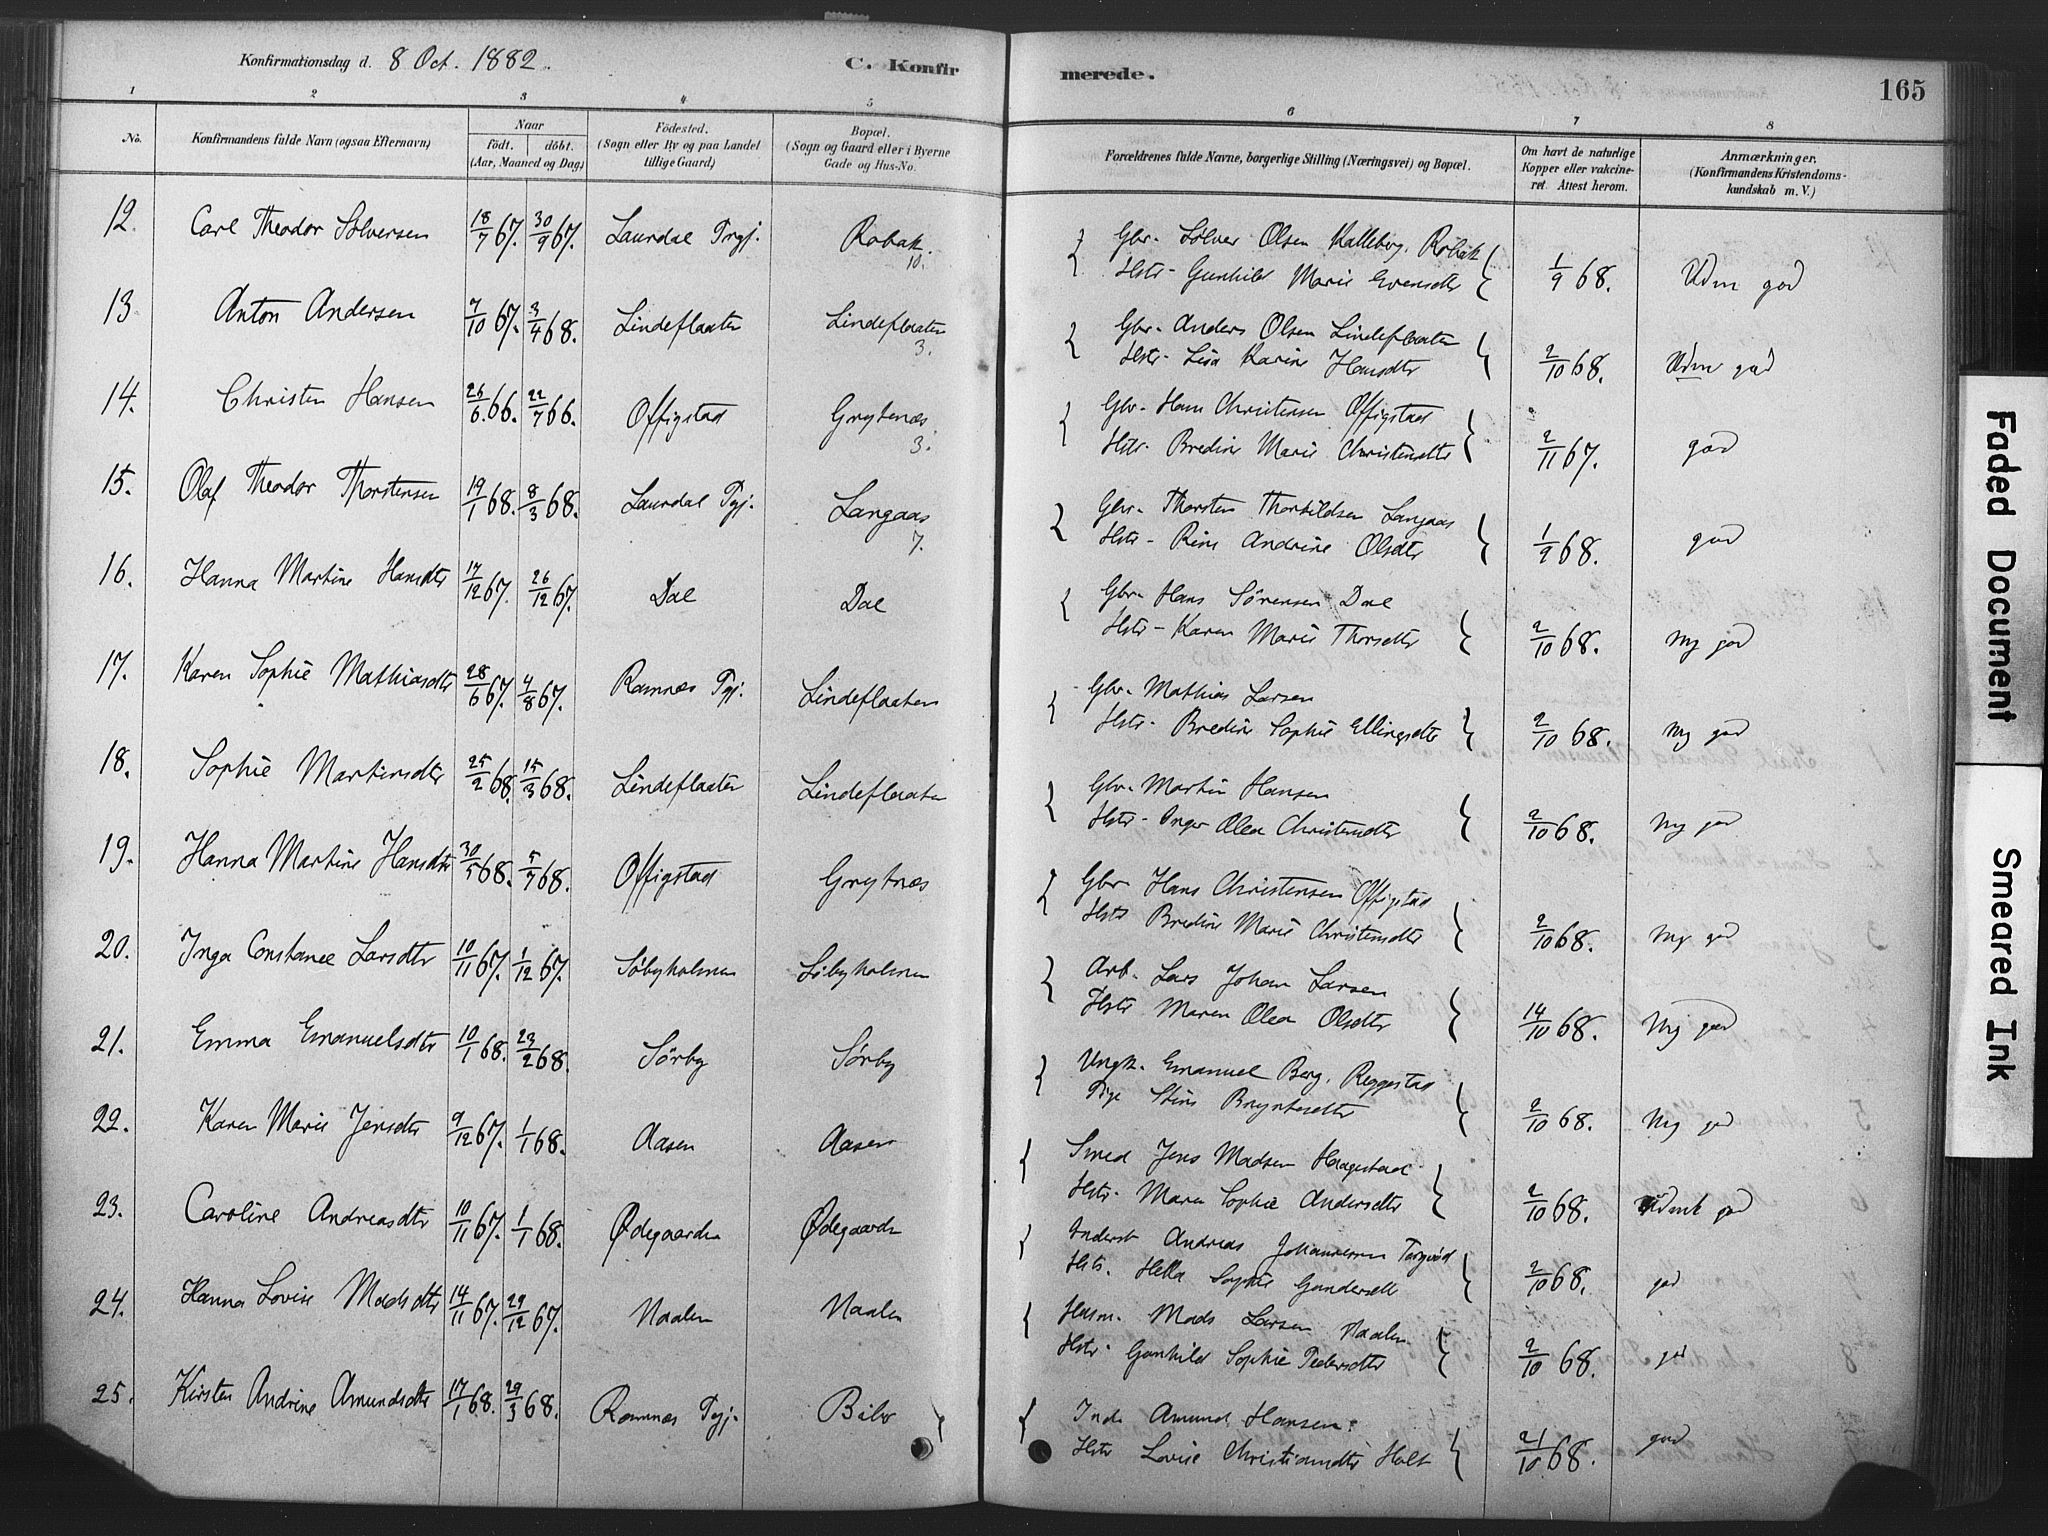 Konfirmationsdag d. 8 Oct. 1882. C. Konfirmerede. 165
1 2 3 4 5 6 7 8
No. Konfirmandens fulde Navn (ogsaa Efternavn) Naar födt. döbt. (Aar, Maaned og Dag) Födested. (Sogn eller By og paa Landet tillige Gaard) Bopæl. (Sogn og Gaard eller i Byerne Gade og Hus-No. Forældrenes fulde Navne, borgerlige Stilling (Næringsvei) og Bopæl. Om havt de naturlige Kopper eller vakcineret. Attest herom. Anmærkninger. (Konfirmandens Kristendomskundskab m. V.)
12. Carl Theodor Sølversen 18/7 67. 30/9 67. Laurdal Prgj. Robak. 10. Gbr. Sølver Olsen Kalleberg. Robak
Hstr. Gunhild Marie Evensdtr 1/9 68. Udm god
13. Anton Andersen 7/10 67. 3/4 68. Lindeflaaten Lindeflaaten 3. Gbr. Anders Olsen Lindeflaaten
Hstr. Lisa Karine Hansdtr 2/10 68. Udm god
14. Christen Hansen 26/6 66. 22/7 66. Offigstad Grytenæs. 3. Gbr. Hans Christensen Offigstad
Hstr. Bredine Marie Christensdtr 2/11 67. god
15. Olaf Theodor Thorstensen 19/1 68. 8/3 68. Laurdal Pgj. Langaas 7. Gbr. Thorsten Thorkildsen Langaas
Hstr. Rine Andrine Olsdtr 1/9 68. god
16. Hanna Martine Hansdtr 17/12 67. 26/12 67. Dal Dal Gbr. Hans Sörensen Dal
Hstr. Karen Marie Thorsdtr 2/10 68. Mg god
17. Karen Sophie Mathiasdtr 28/6 67. 4/8 67. Ramnæs Pgj. Lindeflaaten Gbr. Mathias Larsen
Hstr. Bredine Sophie Ellingsdtr 2/10 68. Mg god
18. Sophie Martinsdtr 25/2 68. 15/3 68. Lindeflaaten Lindeflaaten Gbr. Martin Hansen
Hstr. Inger Olea Christensdtr 2/10 68. Mg god
19. Hanna Martine Hansdtr 30/5 68. 5/7 68. Offigstad Grytnæs Gbr. Hans Christensen Offigstad
Hstr Bredine Marie Christensdtr 2/10 68. Mg god
20. Inga Constance Larsdtr 10/11 67. 1/12 67. Söbyholmen Söbyholmen Arb. Lars Johan Larsen
Hstr Maren Olea Olsdtr 14/10 68. Mg god
21. Emma Emanuelsdtr 10/1 68. 23/2 68. Sörby Sörby Ungk. Emanuel Berg, Reggestad
Pige Stine Bryntesdtr 2/10 68. Mg god
22. Karen Marie Jensdtr 9/12 67. 1/1 68. Aasen Aasen Smed Jens Madsen Haagestad
Hstr. Maren Sophie Andersdtr 2/10 68. Udmk god
23. Caroline Andreasdtr 10/11 67. 1/1 68. Ødegaarden Ødegaarden Inderst Andreas Johannesen
Hstr. Hella Sophie Gundersdtr 2/10 68. god
24. Hanna Lovise Madsdtr 14/11 67. 29/12 67. Naalen Naalen Husm. Mads Larsen Naalen
Hstr. Gunhild Sophie Pedersdtr 2/10 68. god
25. Kirsten Andrine Amundsdtr 17/1 68. 29/3 68. Ramnæs Pgj. Bibo Ind. Amund Hansen
Hstr Lovise Christiansdtr Holt 21/10 68. god
Faded Document
Smeared Ink